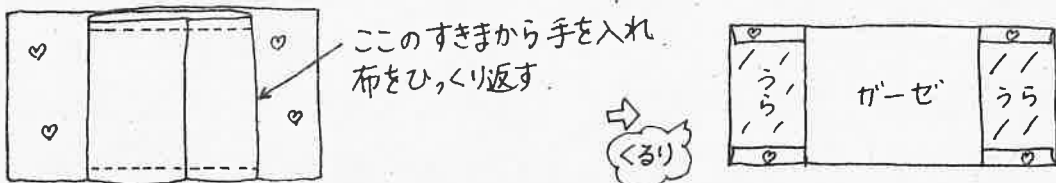 ここのすきまから手を入れ
布をひっくり返す.
くるり
うら
ガーゼ
うら